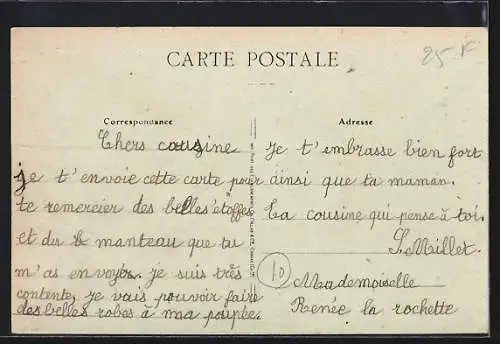 25 F
CARTE POSTALE
Correspondance
Adresse
Chers cousine
je t'envoie cette carte pour
te remercier des belles étoffes
et du le manteau que tu
m'as envoyer. je suis très
contente, je vais pouvoir faire
des belles robes à ma poupée.
Je t'embrasse bien fort
ainsi que ta maman.
La cousine qui pense à toi.
S. Millet.
10
Mademoiselle
Renée la rochette